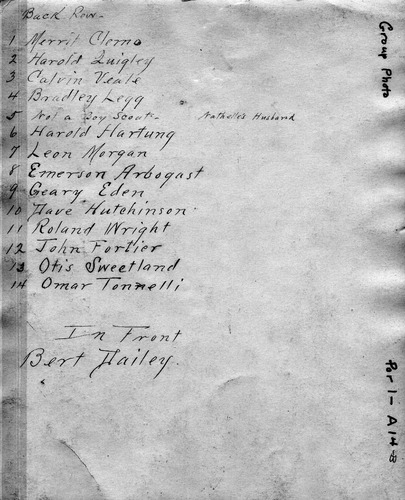 Back Row-
1 Merrit Clemo
2 Harold Quigley
3 Calvin Veale
4 Bradley Legg
5 Not a Boy Scout- Nathelle's Husband
6 Harold Hartung
7 Leon Morgan
8 Emerson Arbogast
9 Geary Eden
10 Dave Hutchinson
11 Roland Wright
12 John Fortier
13 Otis Sweetland
14 Omar Tonnelli
In Front
Bert Hailey.
Group Photo
Por 1- A14-B